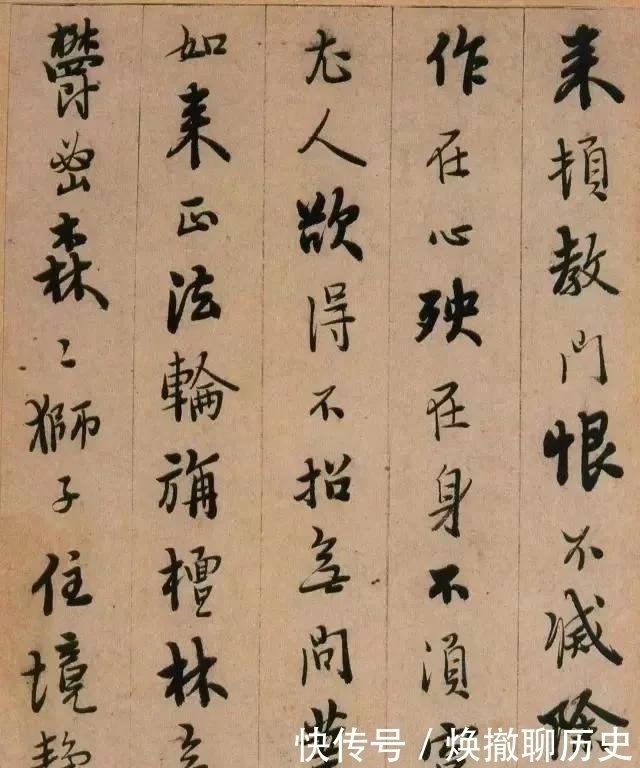 来頓教門恨不滅除
作在心殃在身不須
尤人欲得不招無間業
如来正法輪旃檀林無
鬱密森々獅子住境静
快传号 / 焕撤聊历史